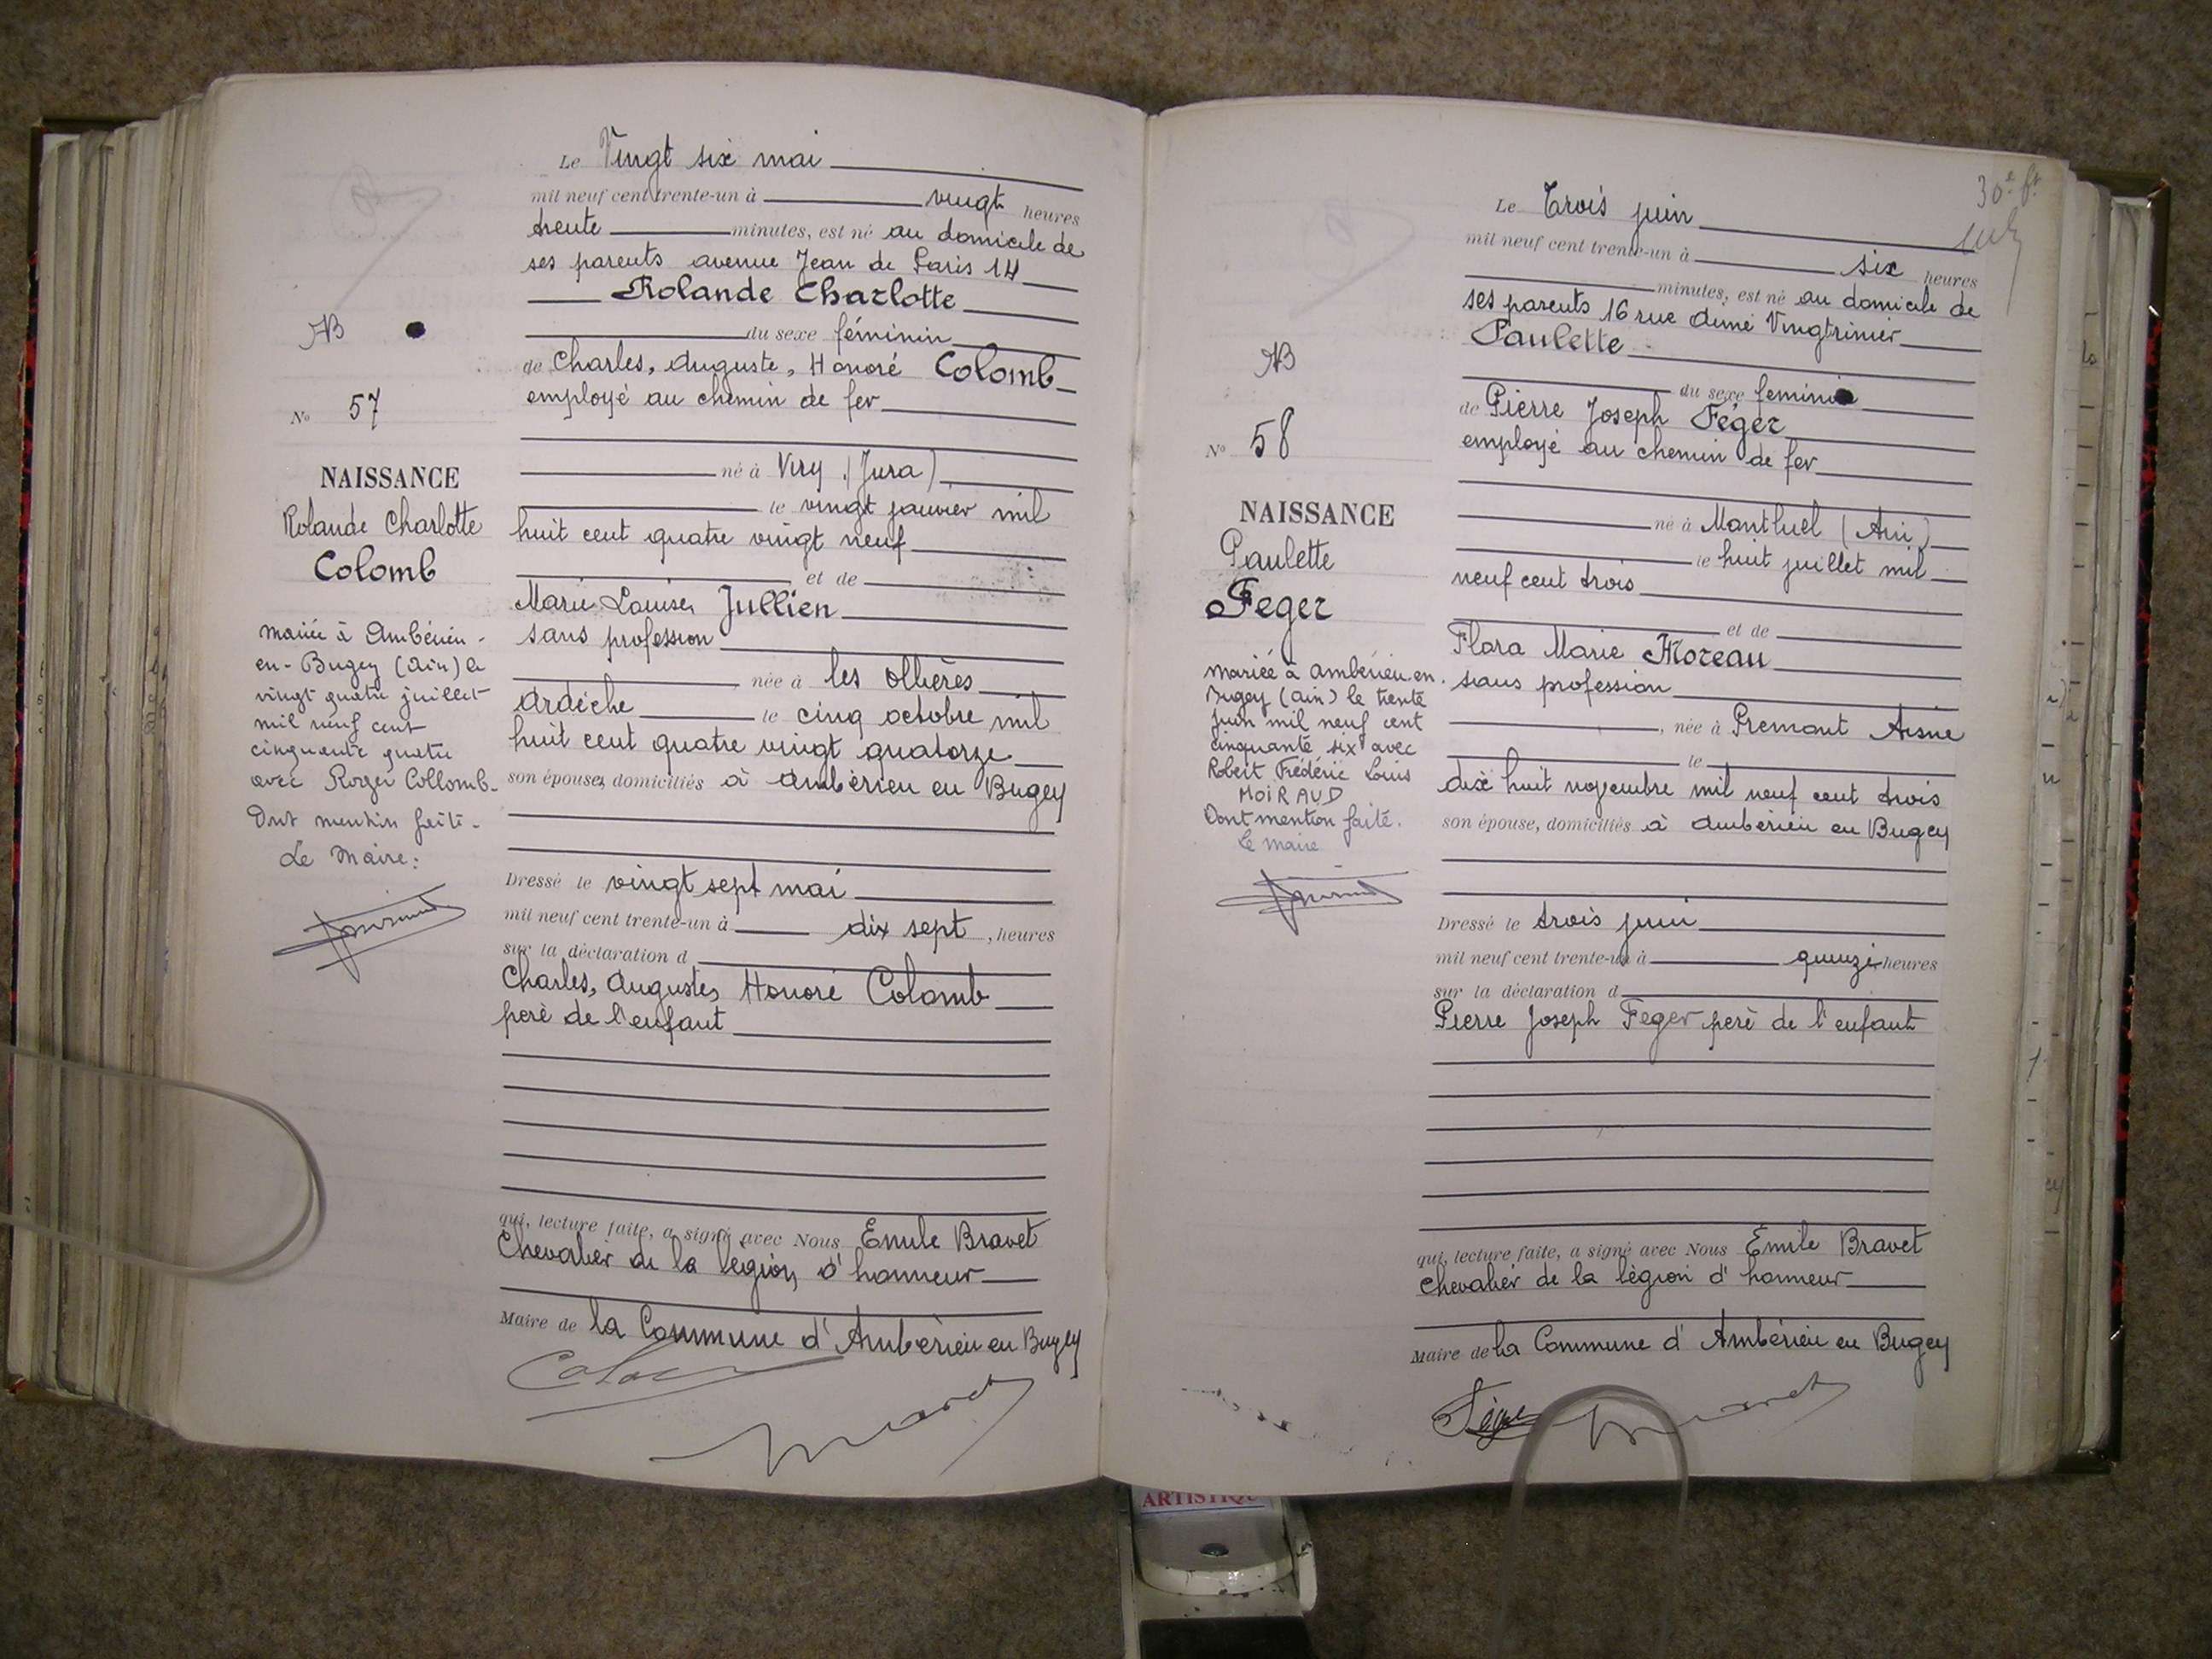 Le Vingt six mai
mil neuf cent trente-un à vingt heures
trente minutes, est né au domicile de
ses parents avenue Jean de Paris 14
Rolande Charlotte
du sexe féminin
de Charles, Auguste, Honoré Colomb
employé au chemin de fer
né à Viry (Jura)
le vingt janvier mil
huit cent quatre vingt neuf
et de
Marie Louise, Jullien
sans profession
née à les Ollières
Ardèche le cinq octobre mil
huit cent quatre vingt quatorze
son épouse, domiciliés à Ambérieu en Bugey
Dressé le vingt sept mai
mil neuf cent trente-un à dix sept, heures
sur la déclaration d
Charles, Auguste, Honoré Colomb
père de l'enfant
qui, lecture faite, a signé avec Nous Emile Bravet
Chevalier de la légion d'honneur
Maire de la Commune d'Ambérieu en Bugey
AB
No 57
NAISSANCE
Rolande Charlotte
Colomb
Mariée à Ambérieu-
en-Bugey (Ain) le
vingt quatre juillet
mil neuf cent
cinquante quatre
avec Roger Collomb-
Dont mention faite-
Le Maire:
30e ft
Le Trois juin
mil neuf cent trente-un à six heures
minutes, est né au domicile de
ses parents 16 rue Aimé Vingtrinier
Paulette
du sexe feminin
de Pierre Joseph Féger
employé au chemin de fer
né à Montluel (Ain)
le huit juillet mil
neuf cent trois
et de
Flora Marie Moreau
sans profession
, née à Premont Aisne
le
dix huit novembre mil neuf cent trois
son épouse, domiciliés à Ambérieu en Bugey
Dressé le trois juin
mil neuf cent trente-un à quinze heures
sur la déclaration d
Pierre Joseph Feger père de l'enfant
qui, lecture faite, a signé avec Nous Émile Bravet
Chevalier de la légion d'honneur
Maire de la Commune d'Ambérieu en Bugey
Féger
AB
No 58
NAISSANCE
Paulette
Feger
Mariée à Ambérieu-en-
Bugey (Ain) le trente
juin mil neuf cent
cinquante six avec
Robert Frédéric Louis
MOIRAUD
Dont mention faite.
Le maire
ARTISTIQU